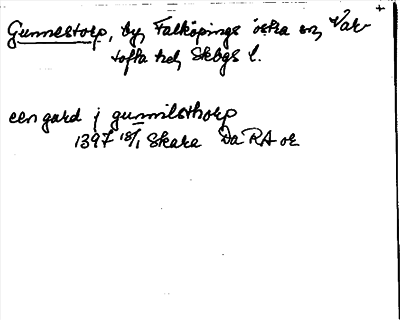 +
Gunnestorp, by, Falköpings östra sn, Var-
tofta hd, Skbgs l.
een gard j gunnilsthorp
1397 18/1 Skara Da RA or